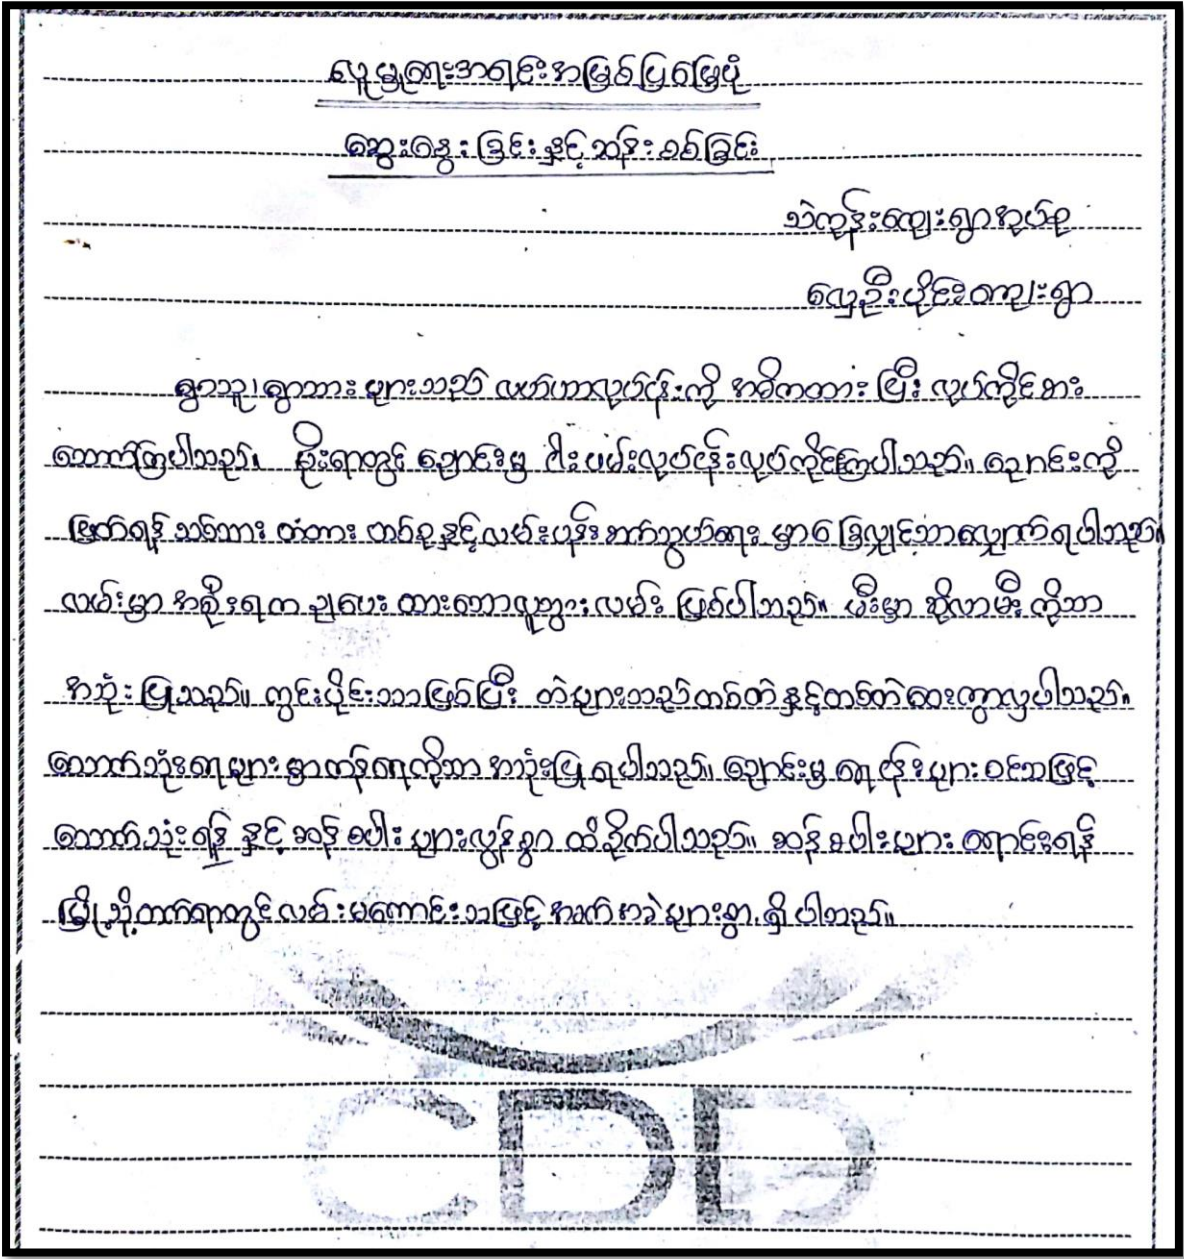 လူမှုရေးအရင်းအမြစ်ပြမြေပုံ
ဆွေးနွေးခြင်းနှင့်ဆန်းစစ်ခြင်း
သဲကုန်းကျေးရွာအုပ်စု
လှေဦးပိုင်းကျေးရွာ
ရွာသူ၊ရွာသားများသည် လယ်ယာလုပ်ငန်းကို အဓိကထားပြီး လုပ်ကိုင်စား
သောက်ကြပါသည်။ မိုးရာတွင် ချောင်းမှ ငါးဖမ်းလုပ်ငန်းလုပ်ကိုင်ကြပါသည်။ ချောင်းကို
ဖြတ်ရန် သစ်သား တံတား တစ်ခုနှင့်လမ်းပန်းဆက်သွယ်ရေး မှာ ခြေလျှင်သာလျှောက်ရပါသည်။
လမ်းမှာ အစိုးရက ချပေးထားသောလူသွားလမ်း ဖြစ်ပါသည်။ မီးမှာ ဆိုလာမီးကိုသာ
အသုံးပြုသည်။ ကွင်းပိုင်းသာဖြစ်ပြီး တဲများသည်တစ်တဲနှင့်တစ်တဲဝေးကွာလှပါသည်။
သောက်သုံးရေများမှာကန်ရေကိုသာ အသုံးပြုရပါသည်။ ချောင်းမှ ရေငန်များဝင်သဖြင့်
သောက်သုံးရန် နှင့်ဆန်စပါးများလွန်စွာ ထိခိုက်ပါသည်။ ဆန်စပါးများ ရောင်းရန်
မြို့သို့တက်ရာတွင်လမ်းမကောင်းသဖြင့်အခက်အခဲများစွာရှိပါသည်။
CDD